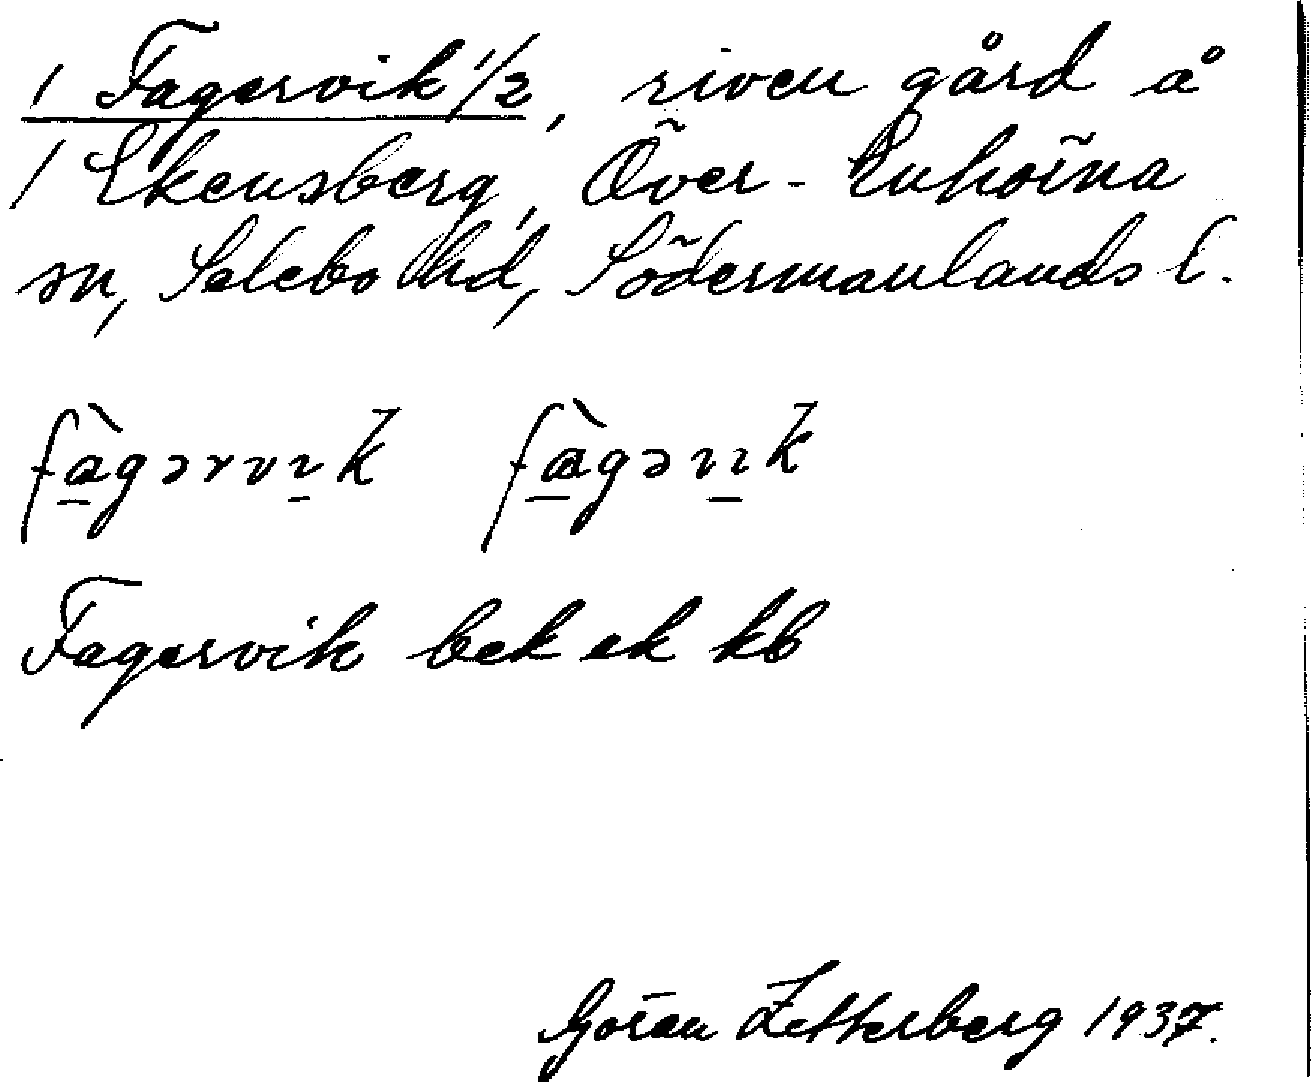 1 Fagervik 1/2, riven gård å
1 Ekensberg, Över-Enhörna
sn, Selebo hd, Södermanlands l.
fàgərvık fàgəvık
Fagervik bek ek kb
Göran Zetterberg 1937.